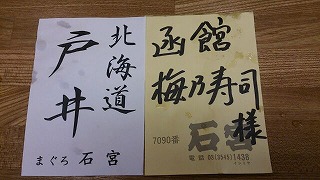 北海道
戸井
まぐろ 石宮
函館
梅乃寿司様
7090番
石宮
電話 03(3545)1438